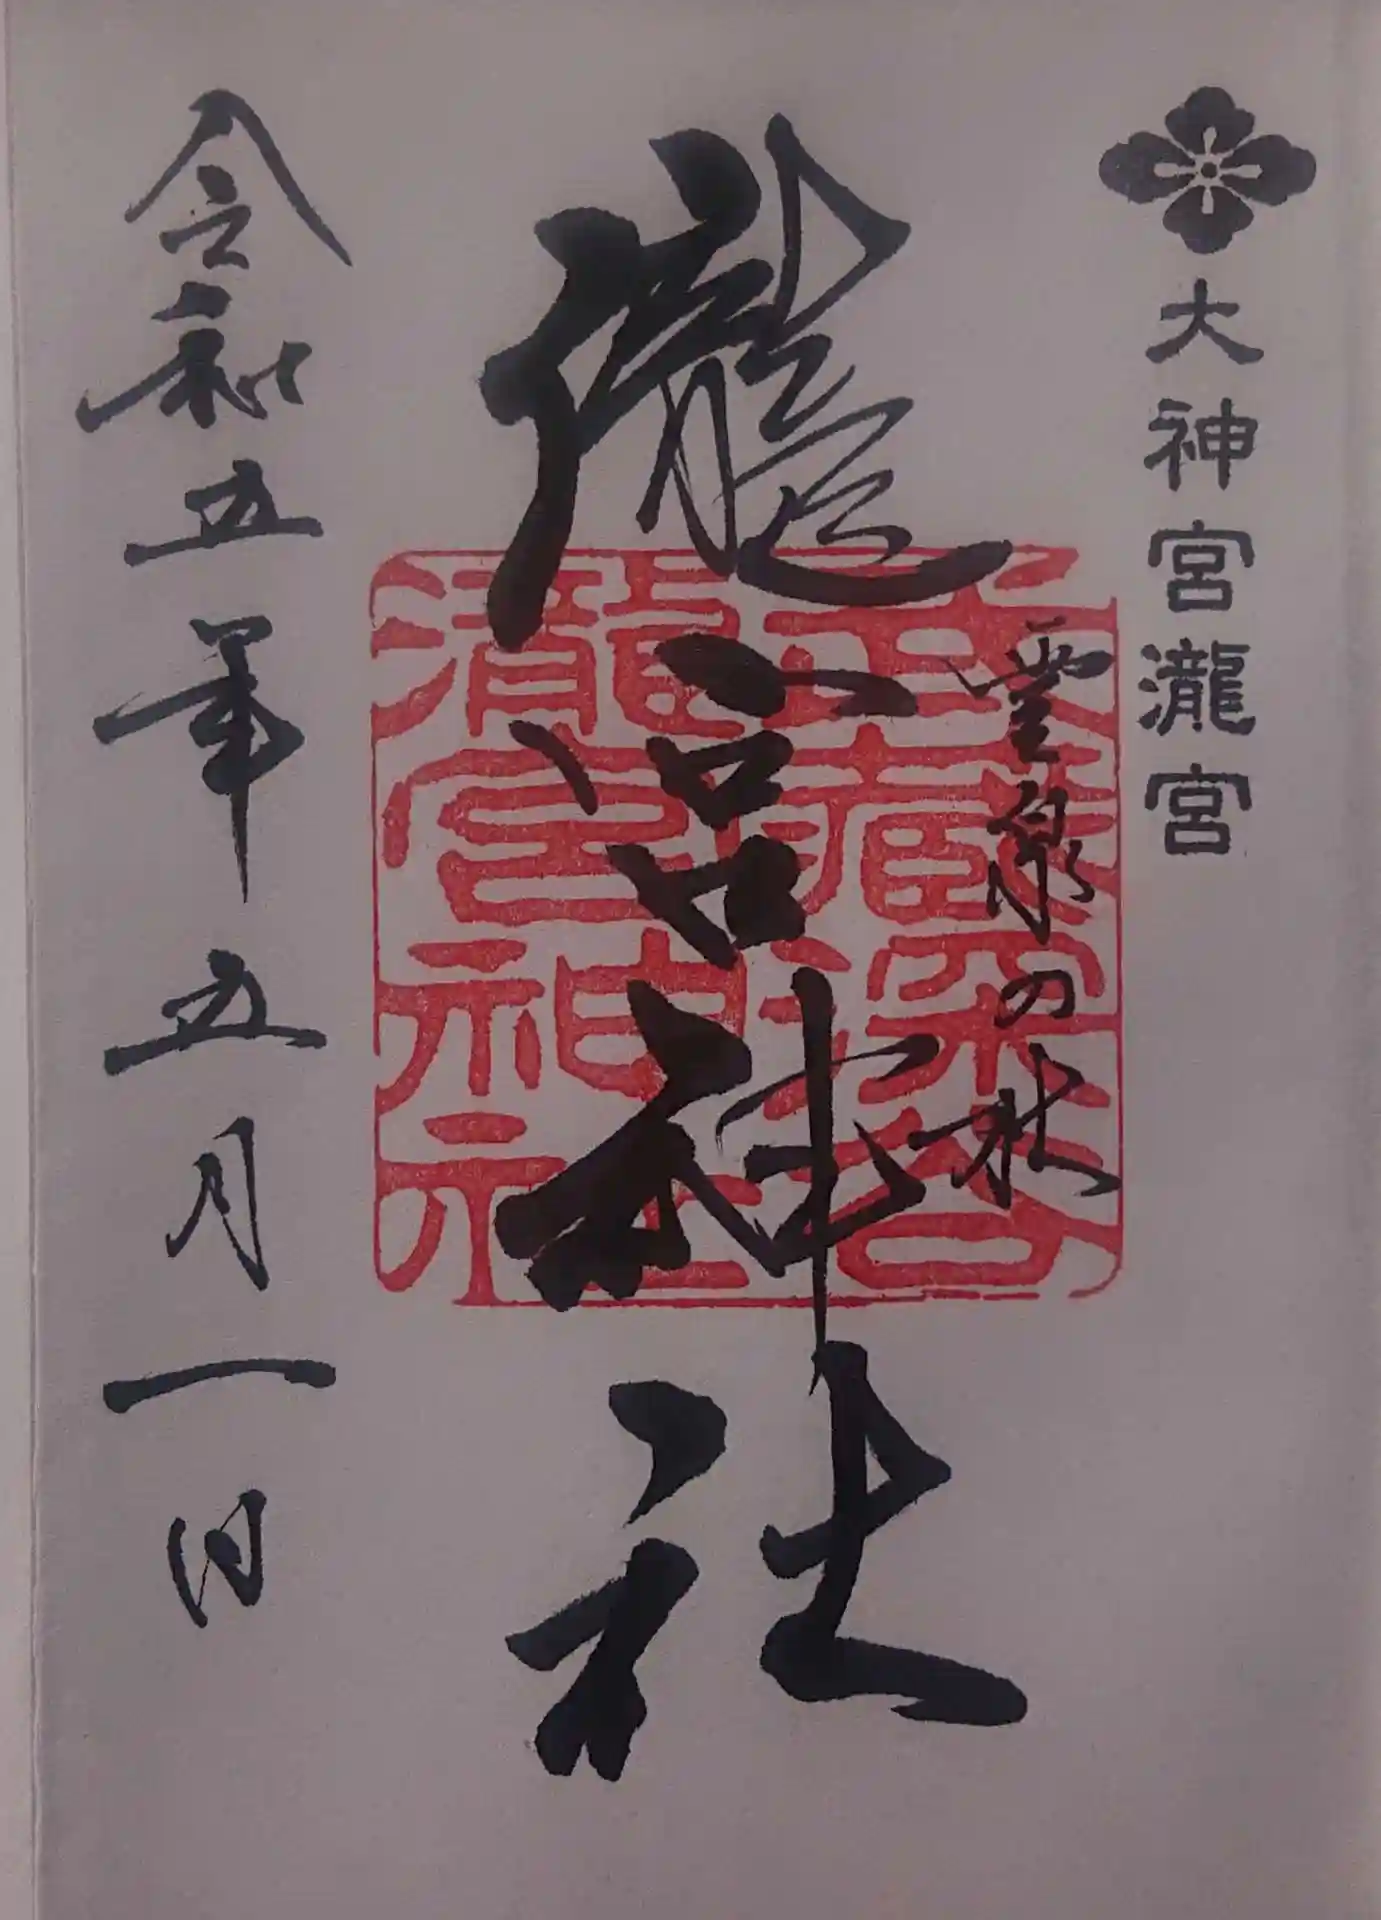 大神宮瀧宮
霊泉の杜
瀧宮神社
武藏深谷
瀧宮神社
令和五年五月一日